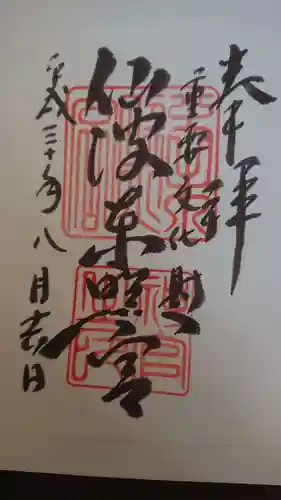 奉拝
重要文化財
仙波東照宮
平成三十年八月吉日